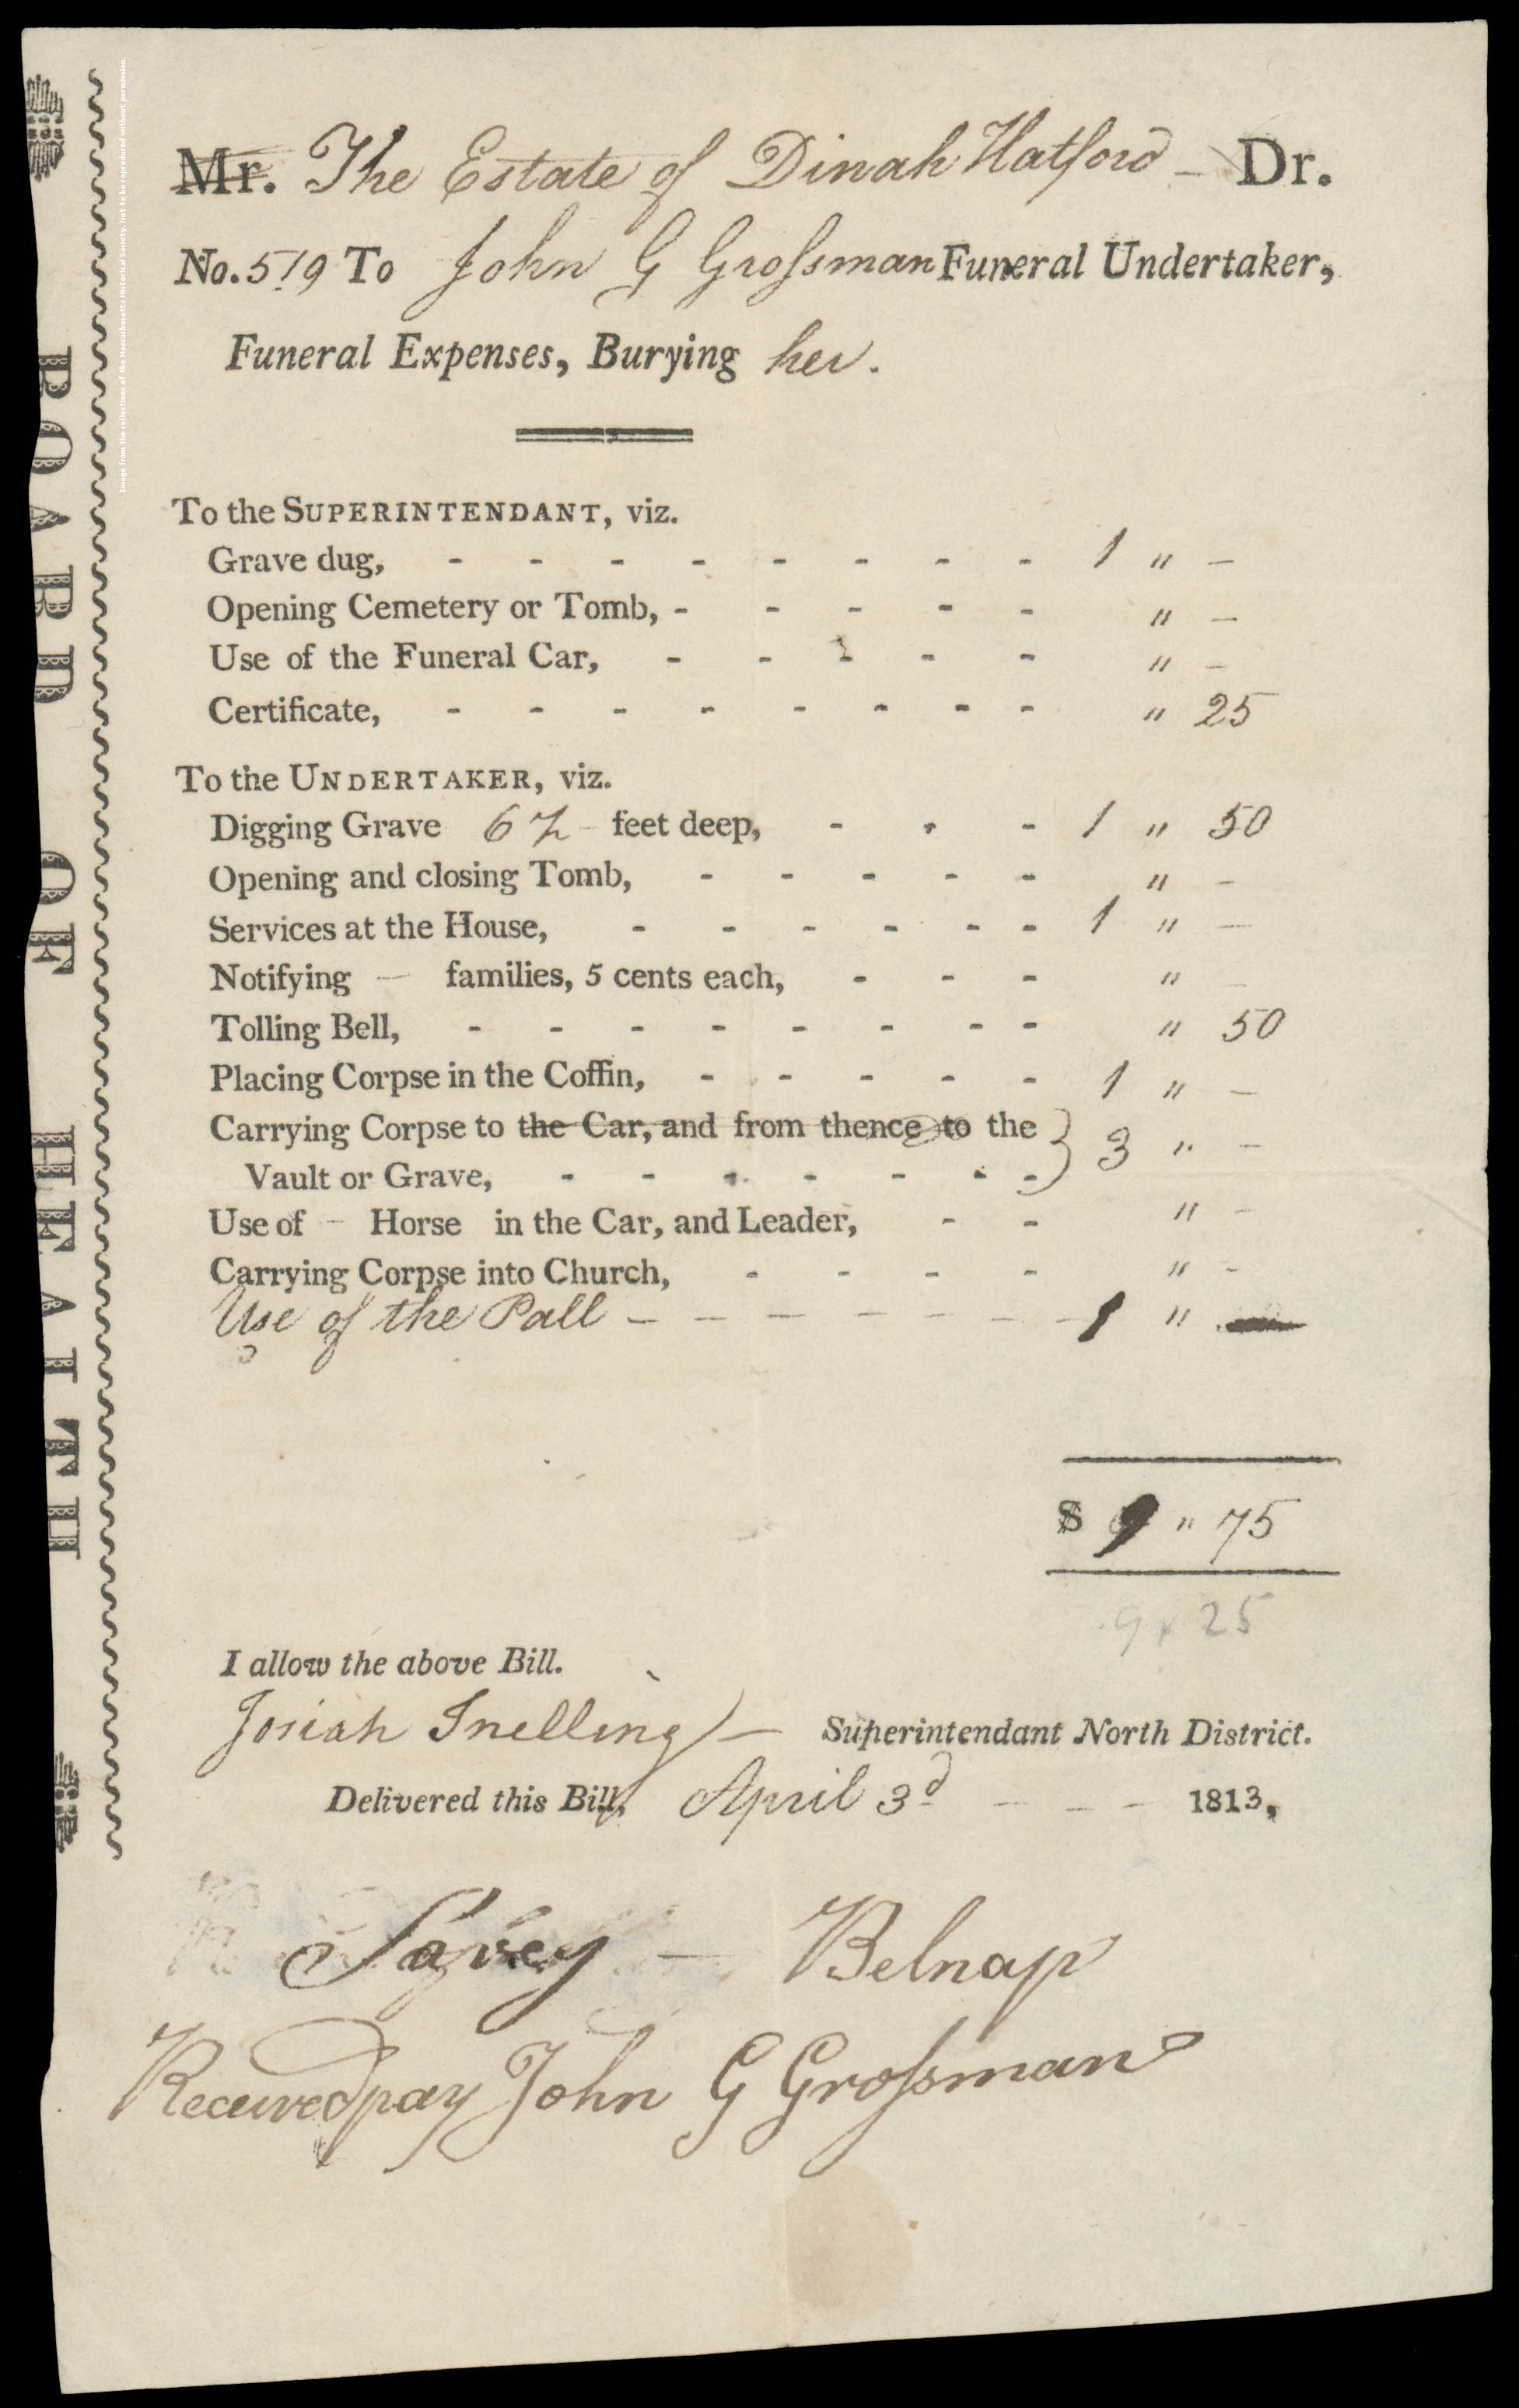 BOARD OF HEALTH
Image from the collections of the Massachusetts Historical Society. Not to be reproduced without permission.
Mr. The Estate of Dinah Hatford – Dr.
No. 519 To John G Grossman Funeral Undertaker,
Funeral Expenses, Burying her.
To the SUPERINTENDANT, viz.
Grave dug, - - - - - - - - 1 " –
Opening Cemetery or Tomb, - - - - - " –
Use of the Funeral Car, - - - - - " –
Certificate, - - - - - - - - " 25
To the UNDERTAKER, viz.
Digging Grave feet deep, - - - 1 " 50
Opening and closing Tomb, - - - - - " –
Services at the House, - - - - - - 1 " –
Notifying – families, 5 cents each, - - - " –
Tolling Bell, - - - - - - - - " 50
Placing Corpse in the Coffin, - - - - - 1 " –
Carrying Corpse to the Car, and from thence to the } 3 " –
Vault or Grave, - - - - - - -
Use of – Horse in the Car, and Leader, - - " –
Carrying Corpse into Church, - - - - " –
Use of the Pall – – – – – – – 1 " –
$ 9 " 75
9 25
I allow the above Bill.
Josiah Snelling – Superintendant North District.
Delivered this Bill, April 3d – – – 1813,
Savey – Belnap
Received pay John G Grossman